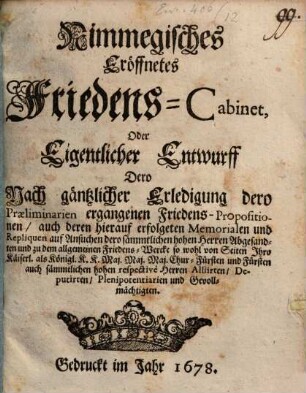 99.
Nimmegisches
Eröffnetes
Friedens-Cabinet,
Oder
Eigentlicher Entwurff
Dero
Nach gäntzlicher Erledigung dero
Præliminarien ergangenen Friedens-Propositio-
nen / auch deren hierauf erfolgeten Memorialen und
Repliquen auf Ansuchen dero sämmtlichen hohen Herren Abgesand-
ten und zu dem allgemeinen Friedens-Wercke so wohl von Seiten Ihro
Käiserl. als Königl. K. K. Maj. Maj. Maj. Chur-Fürsten und Fürsten
auch sämmtlichen hohen respectivè Herren Alliirten / De-
putirten / Plenipotentiarien und Gevoll-
mächtigten.
Gedruckt im Jahr 1678.